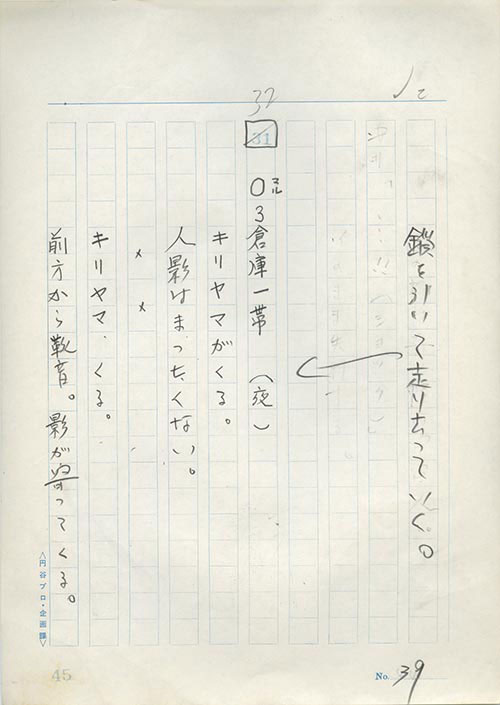 鎖を引いて走り去っていく。
32
31
0マル3倉庫一帯(夜)
キリヤマがくる。
人影はまったくない。
× ×
キリヤマ、くる。
前方から靴音。影が寄ってくる。
〈円谷プロ・企画課〉
45
No. 39